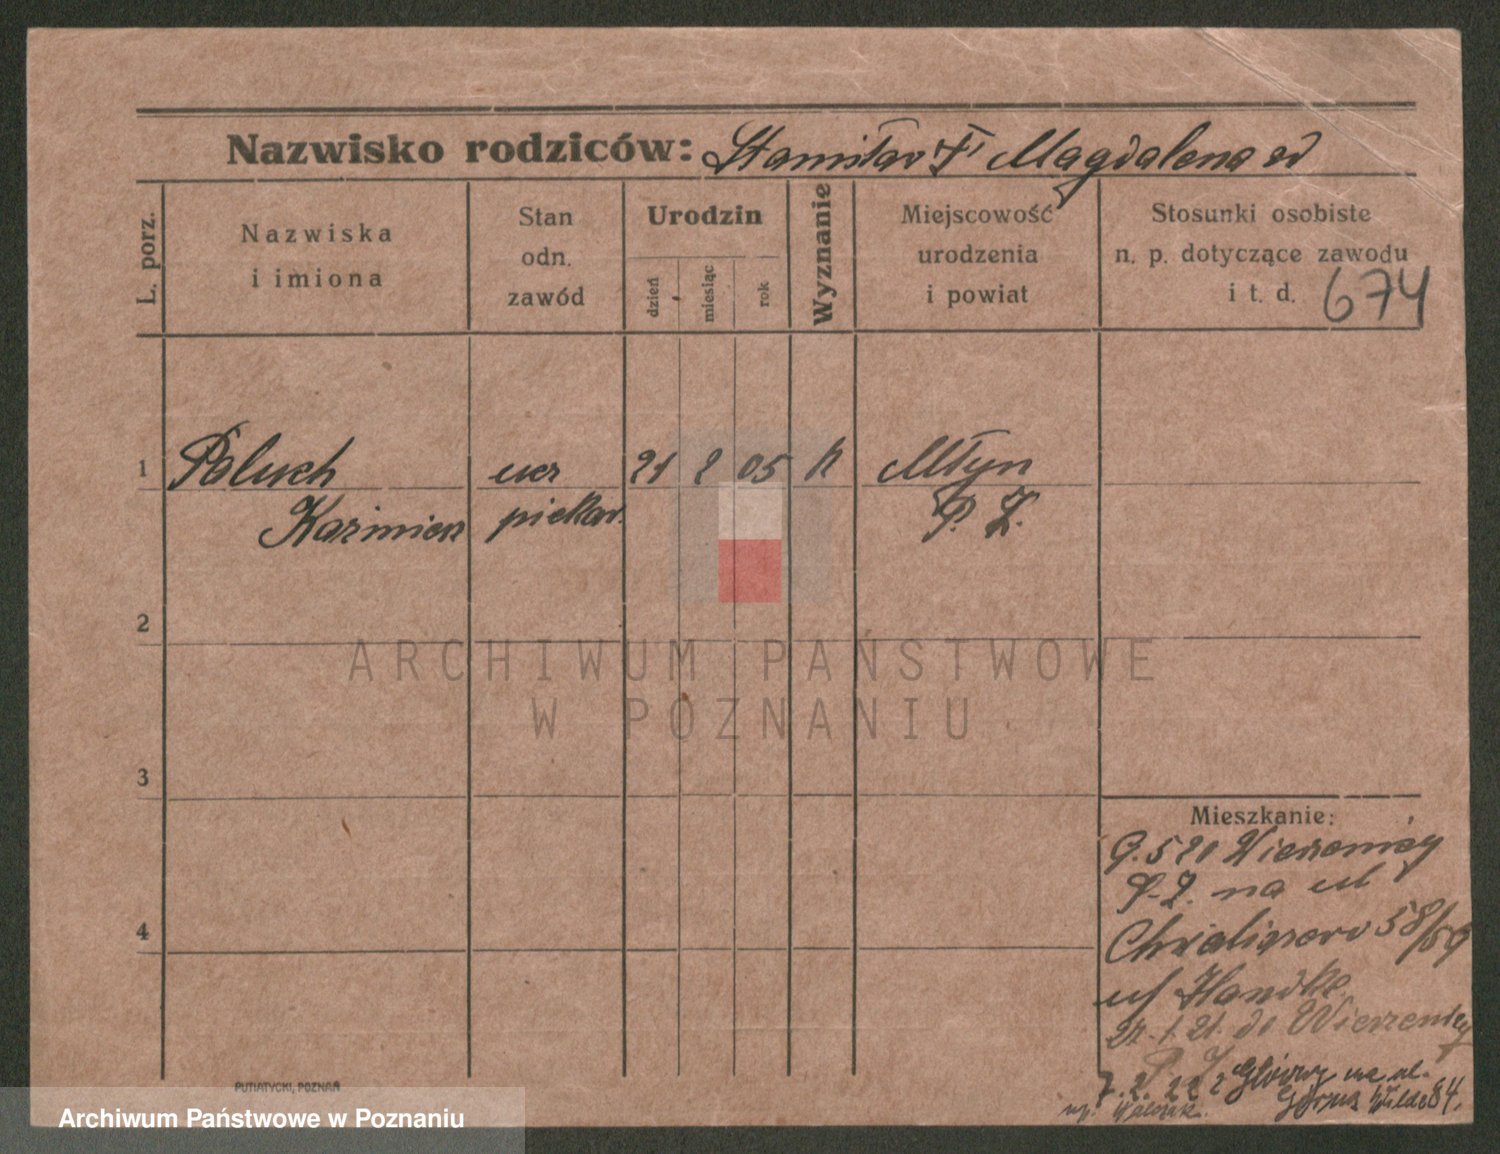 Nazwisko rodziców: Stanisław i Magdalena
L. porz.
Nazwiska i imiona
Stan odn. zawód
Urodzin
dzień
miesiąc
rok
Wyznanie
Miejscowość urodzenia i powiat
Stosunki osobiste n. p. dotyczące zawodu i t. d.
674
1 Paluch ucz 21 2 05 k Młyn
Kazimierz piekar.
2
3
4
Mieszkanie:
9.5 20 Wierzenicy
na ul
Chwaliszewo 58/59
Handke
21. do Wierzenicy
7. 2. 22 z Główny na ul.
Górna Wilda 84.
PUTIATYCKI, POZNAŃ
ARCHIWUM PAŃSTWOWE
W POZNANIU
Archiwum Państwowe w Poznaniu